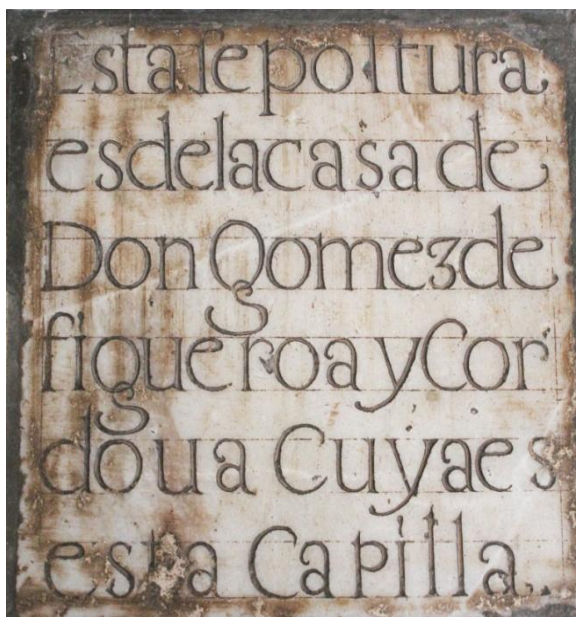 Esta sepoltura
esdelacasa de
Don Gomezde
figueroa y Cor
doua Cuyaes
esta Capilla.